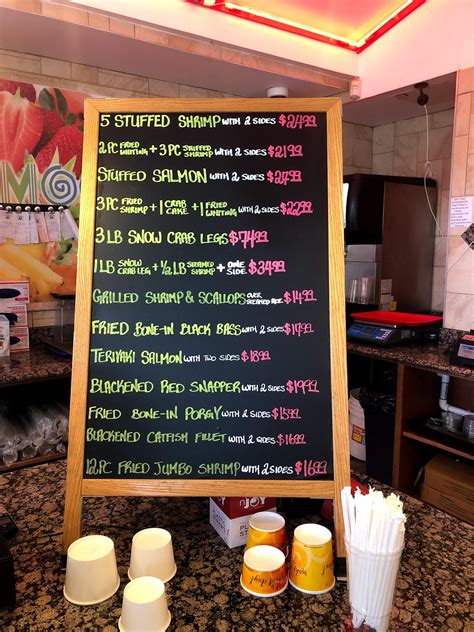 5 STUFFED SHRIMP WITH 2 SIDES $24.99
2 PC FRIED WHITING + 3 PC STUFFED SHRIMP WITH 2 SIDES $21.99
STUFFED SALMON WITH 2 SIDES $27.99
3 PC FRIED SHRIMP + 1 CRAB CAKE + 1 FRIED WHITING WITH 2 SIDES $22.99
3 LB SNOW CRAB LEGS $74.99
1 LB SNOW CRAB LEG + 1/2 LB STEAMED SHRIMP + ONE SIDE $34.99
GRILLED SHRIMP & SCALLOPS OVER STEAMED RICE $14.99
FRIED BONE-IN BLACK BASS WITH 2 SIDES $17.99
TERIYAKI SALMON WITH TWO SIDES $18.99
BLACKENED RED SNAPPER WITH 2 SIDES $19.99
FRIED BONE-IN PORGY WITH 2 SIDES $15.99
BLACKENED CATFISH FILLET WITH 2 SIDES $16.99
12 PC FRIED JUMBO SHRIMP WITH 2 SIDES $16.99
nJOY